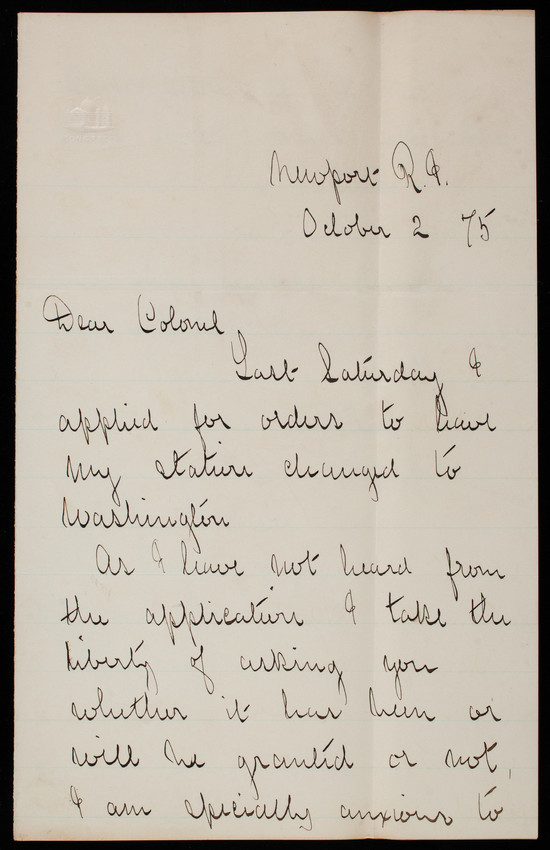 Newport R.I.
October 2 75
Dear Colonel
Last Saturday I
applied for orders to have
my station changed to
Washington
As I have not heard from
the application I take the
liberty of asking you
whether it has been or
will be granted or not,
I am specially anxious to